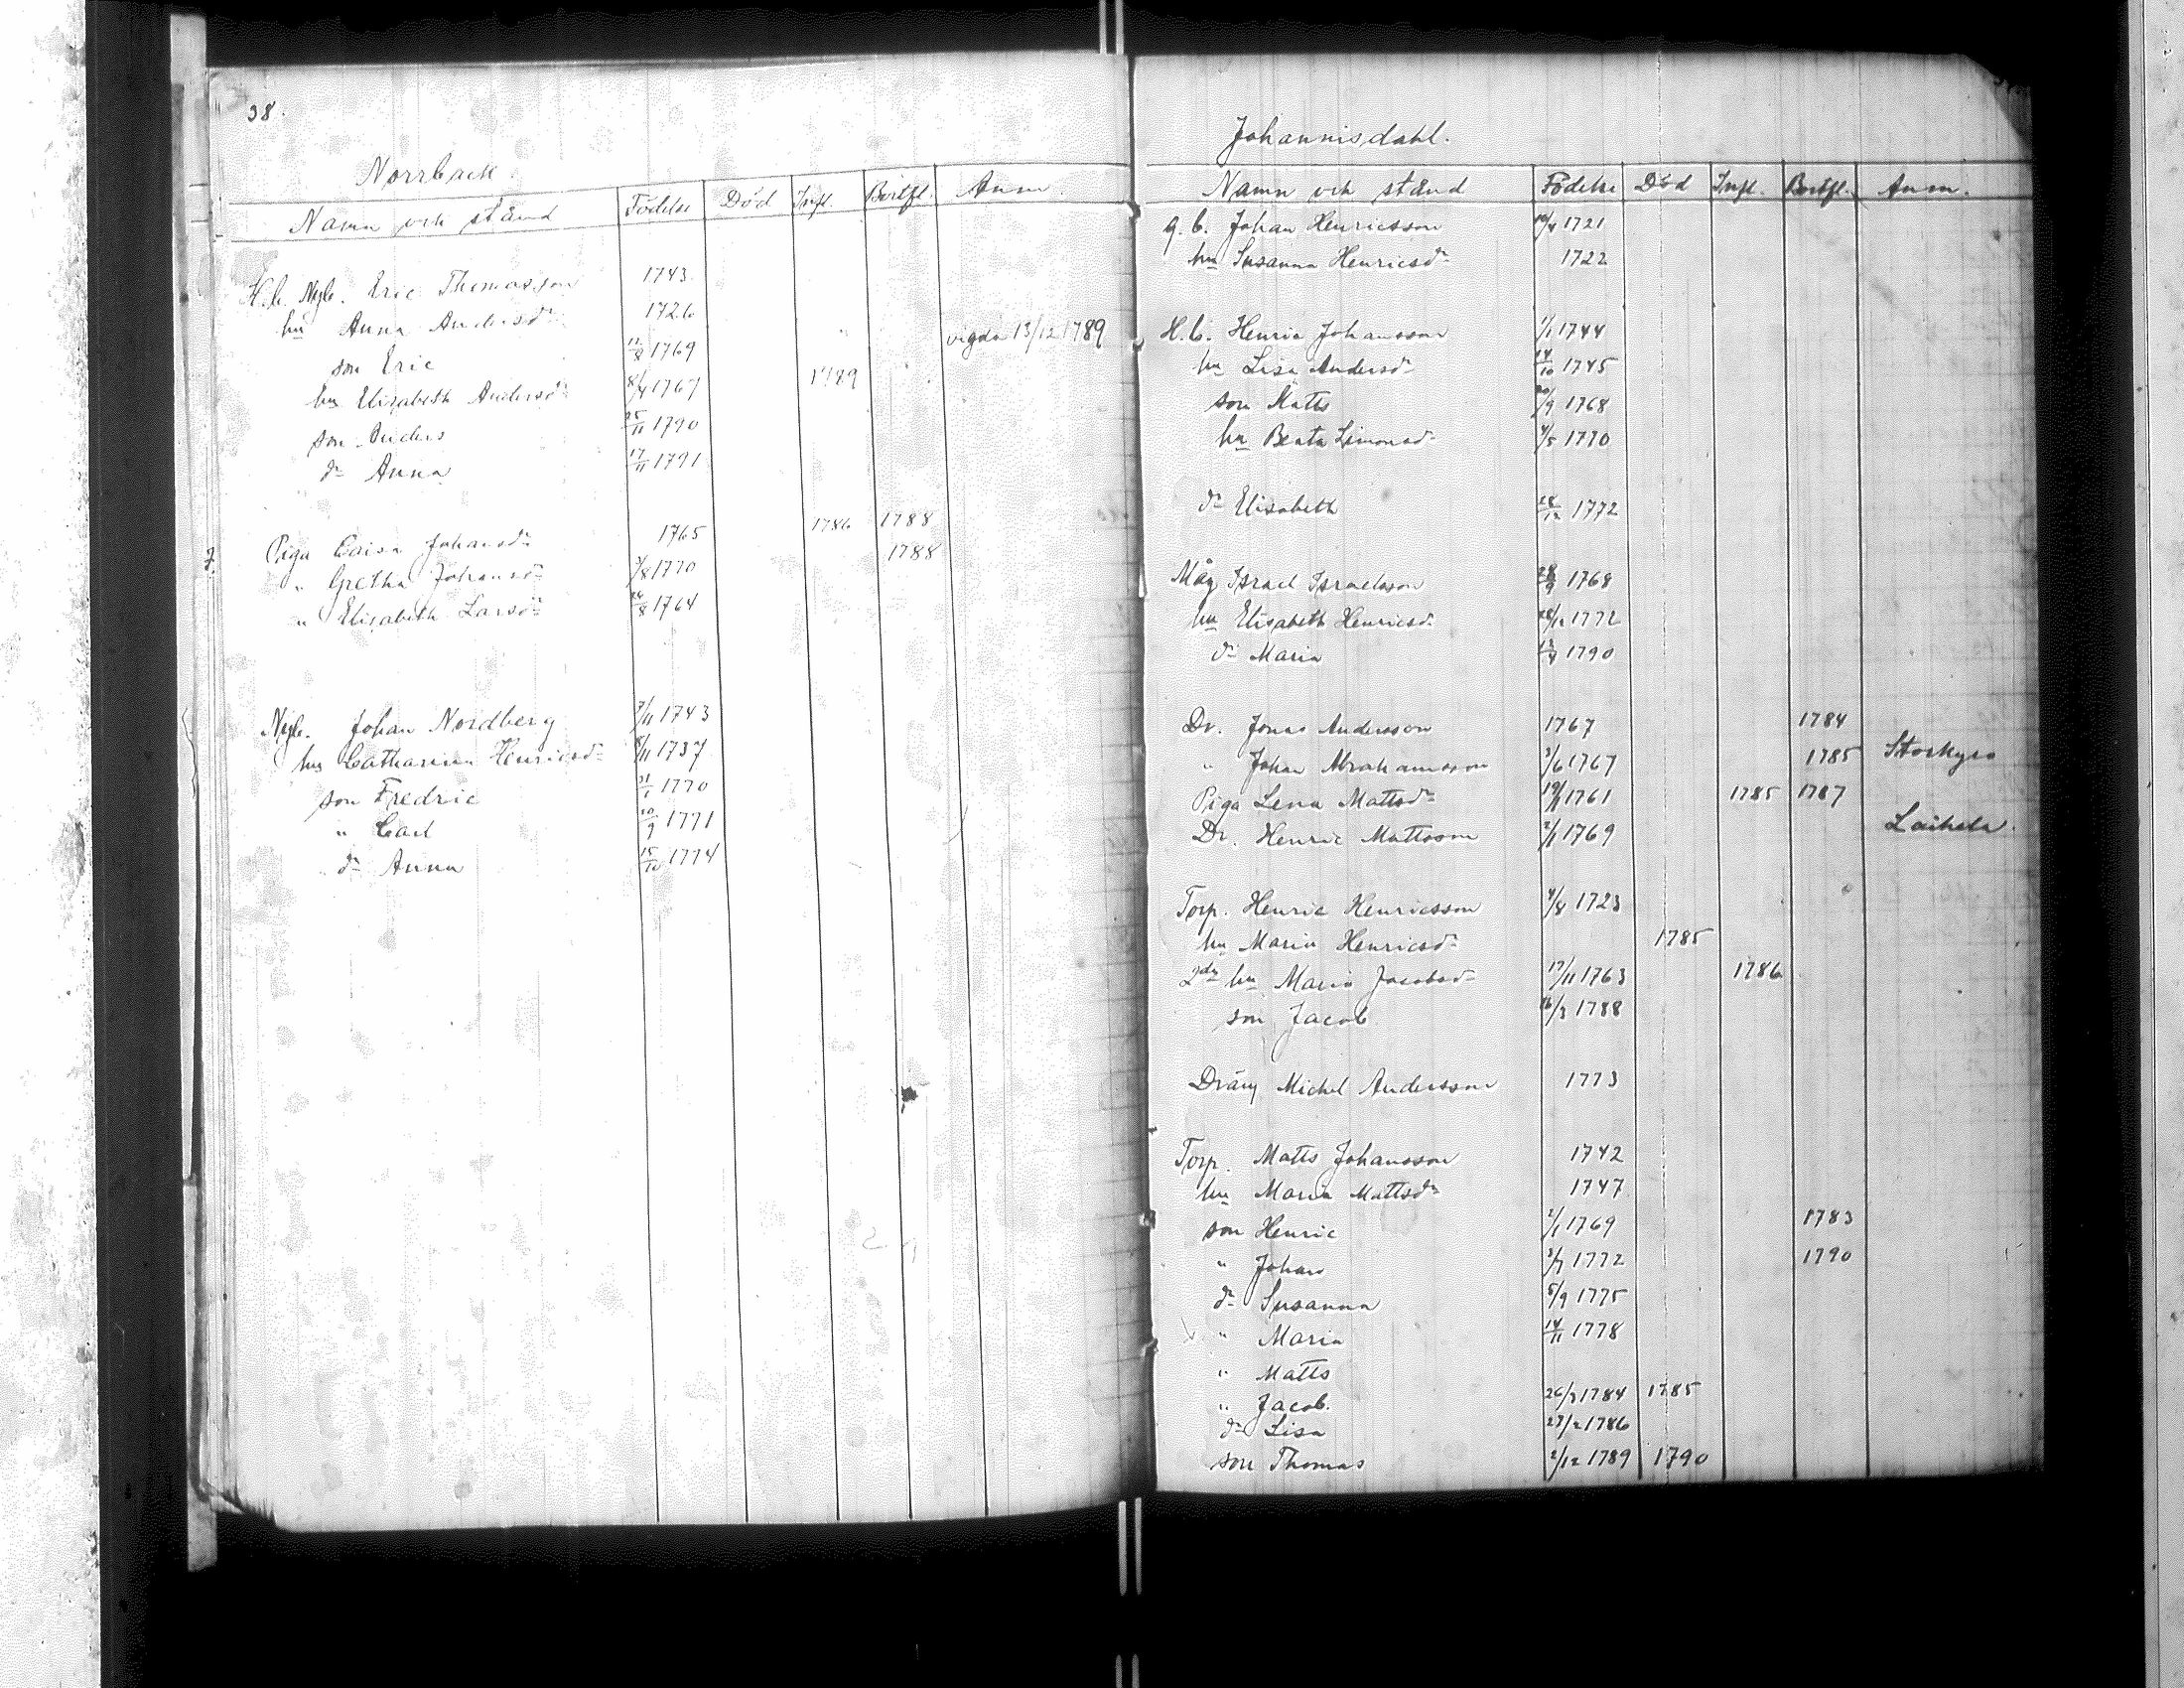 38.
Norrback.
Namn och stånd Födelse Död Infl. Bortfl. Anm.
H.b. Nyb. Eric Thomasson 1743
hu Anna Andersdr 1726
son Eric 11/8 1769 vigda 13/12 1789
hu Elisabeth Andersdr 8/4 1767 1789
son Anders 25/11 1790
dr Anna 17/11 1791
Piga Caisa Johansdr 1765 1786 1788
" Gretha Johansdr /8 1770 1788
" Elisabeth Larsdr 26/8 1764
Nyb. Johan Nordberg 7/11 1743
hu Catharina Henricsdr 8/11 1737
son Fredric 31/1 1770
" Carl 20/9 1771
dr Anna 15/10 1774
Johannisdahl.
Namn och stånd Födelse Död Infl. Bortfl. Anm.
g. b. Johan Henricsson 1721
hu Susanna Henricsdr 1722
H.b. Henric Johansson 1/1 1744
hu Lisa Andersdr 14/10 1745
son Matts 20/9 1768
hu Beata Simonsdr 4/5 1770
dr Elisabeth 28/12 1772
Måg Israel Israelsson 1768
hu Elisabeth Henricsdr 28/12 1772
dr Maria 1790
Dr. Jonas Andersson 1767 1784
" Johan Abrahamsson 3/6 1767 1785 Storkyro
Piga Lena Mattsdr 1761 1785 1787
Dr. Henric Mattsson 2/1 1769 Laihela.
Torp. Henric Henricsson 4/8 1723
hu Maria Henricsdr 1785
2dra hu Maria Jacobsdr 17/11 1763 1786
son Jacob 16/3 1788
Dräng Michel Andersson 1773
Torp. Matts Johansson 1742
hu Maria Mattsdr 1747
son Henric 2/1 1769 1783
" Johan 3/7 1772 1790
dr Susanna 5/9 1775
" Maria 14/11 1778
" Matts
" Jacob. 26/3 1784 1785
dr Lisa 27/2 1786
son Thomas 2/12 1789 1790